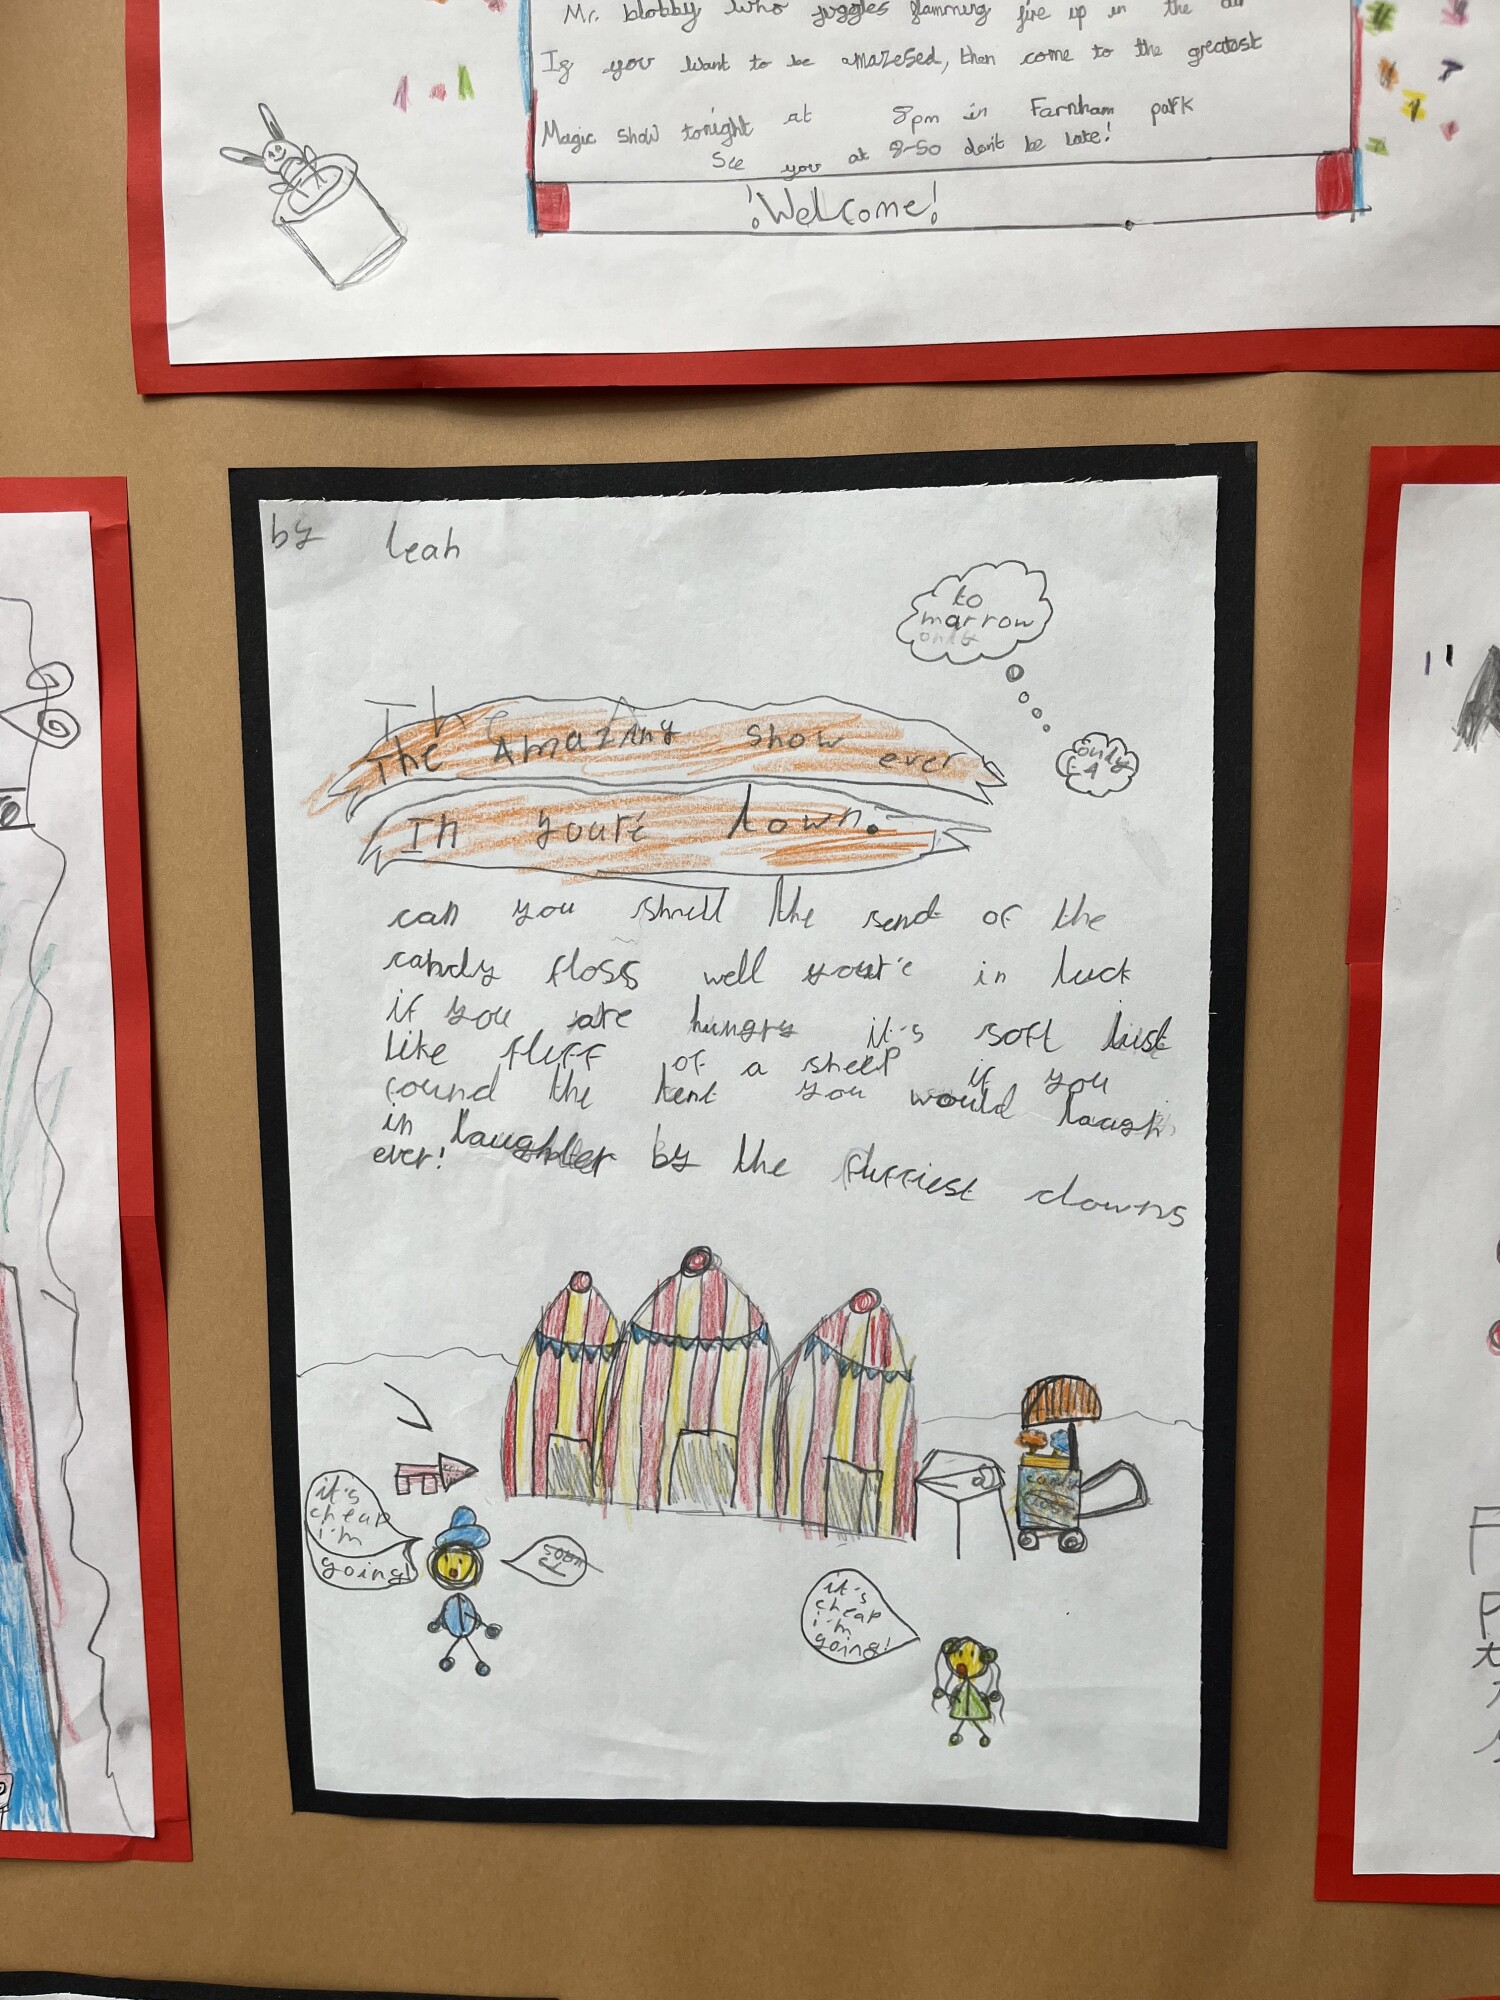 Mr. blobby who juggles flamming fire up in the air
If you want to be amazesed, then come to the greatest
Magic show tonight at 8pm in Farnham park
See you at 8-50 don't be late!
!Welcome!
by leah
to
marrow
only
only
£4
The
The Amazing show ever
In youre town.
can you shmell the send of the
candy floss well your'e in luck
if you are hungry it's soft just
like fluff of a sheep if you
round the tent you would laugh
in laughter by the fluffiest clowns
ever!
it's
cheap
i'm
going!
it's
cheap
i'm
going!
candy
floss